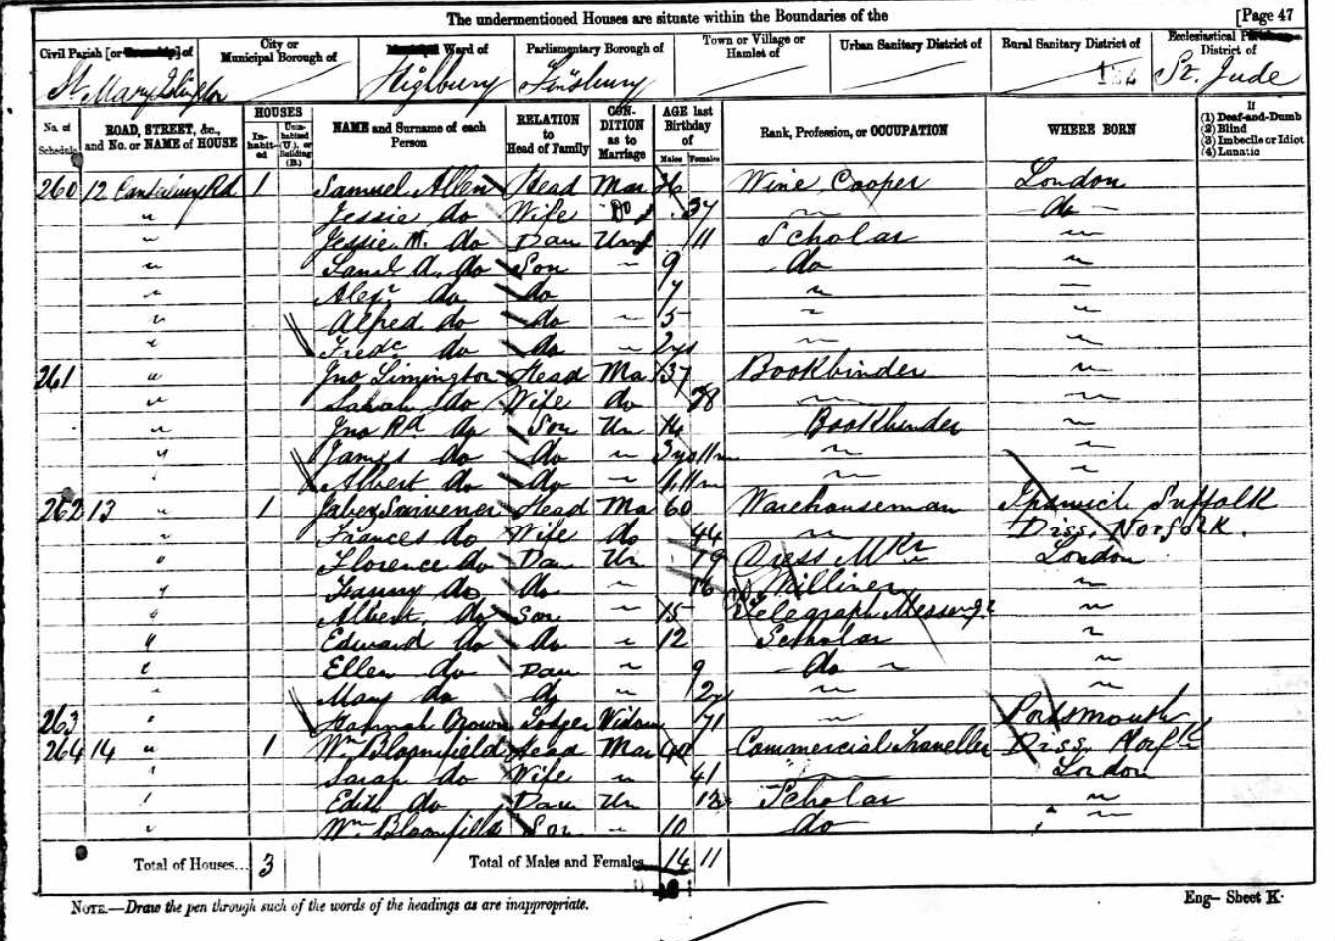 The undermentioned Houses are situate within the Boundaries of the [Page 47
Civil Parish [or Township] of City or Municipal Borough of Municipal Ward of Parliamentary Borough of Town or Village or Hamlet of Urban Sanitary District of Rural Sanitary District of Ecclesiastical District of
St. Mary Islington Highbury Finsbury St. Jude
No. of Schedule ROAD, STREET, &c., and No. or NAME of HOUSE HOUSES Inhabited Uninhabited (U.), or Building (B.) NAME and Surname of each Person RELATION to Head of Family CONDITION as to Marriage AGE last Birthday of Males Females Rank, Profession, or OCCUPATION WHERE BORN If (1) Deaf-and-Dumb (2) Blind (3) Imbecile or Idiot (4) Lunatic
260 12 Canterbury Rd 1 Samuel Allen Head Mar 36 Wine Cooper London
" Jessie do Wife Do 37 " do
" Jessie M. do Dau Unm 11 Scholar "
" Saml A. do Son " 9 do "
" Alexr do do 7 " "
" Alfred do do " 5 " "
" Fredc do do " 2 " "
261 " Jno Head Ma 37 Bookbinder "
" Sarah do Wife do 38 " "
" Jno Rd do Son Un 14 Bookbinder "
" James do do " 3 11m " "
" Albert do do " 11m " "
262 13 " 1 Jabez Scrivener Head Ma 60 Warehouseman Ipswich Suffolk
" Frances do Wife do 44 " Diss, Norfolk.
" Florence do Dau Un 19 Dress Mkr London
" Fanny do do " 16 Milliner "
" Albert do Son " 15 Telegraph Messengr "
" Edward do do " 12 Scholar "
" Ellen do Dau " 9 do " "
" Mary do do " 2 " "
263 " Hannah Brown Lodger Widow 71 " Portsmouth
264 14 " 1 Wm Bloomfield Head Mar Commercial Traveller Diss, Norfk
" Sarah do Wife " 41 " London
" Edith do Dau Un 12 Scholar "
" Wm Bloomfield Son " 10 do "
Total of Houses... 3 Total of Males and Females 14 11
NOTE.—Draw the pen through such of the words of the headings as are inappropriate.
Eng- Sheet K.